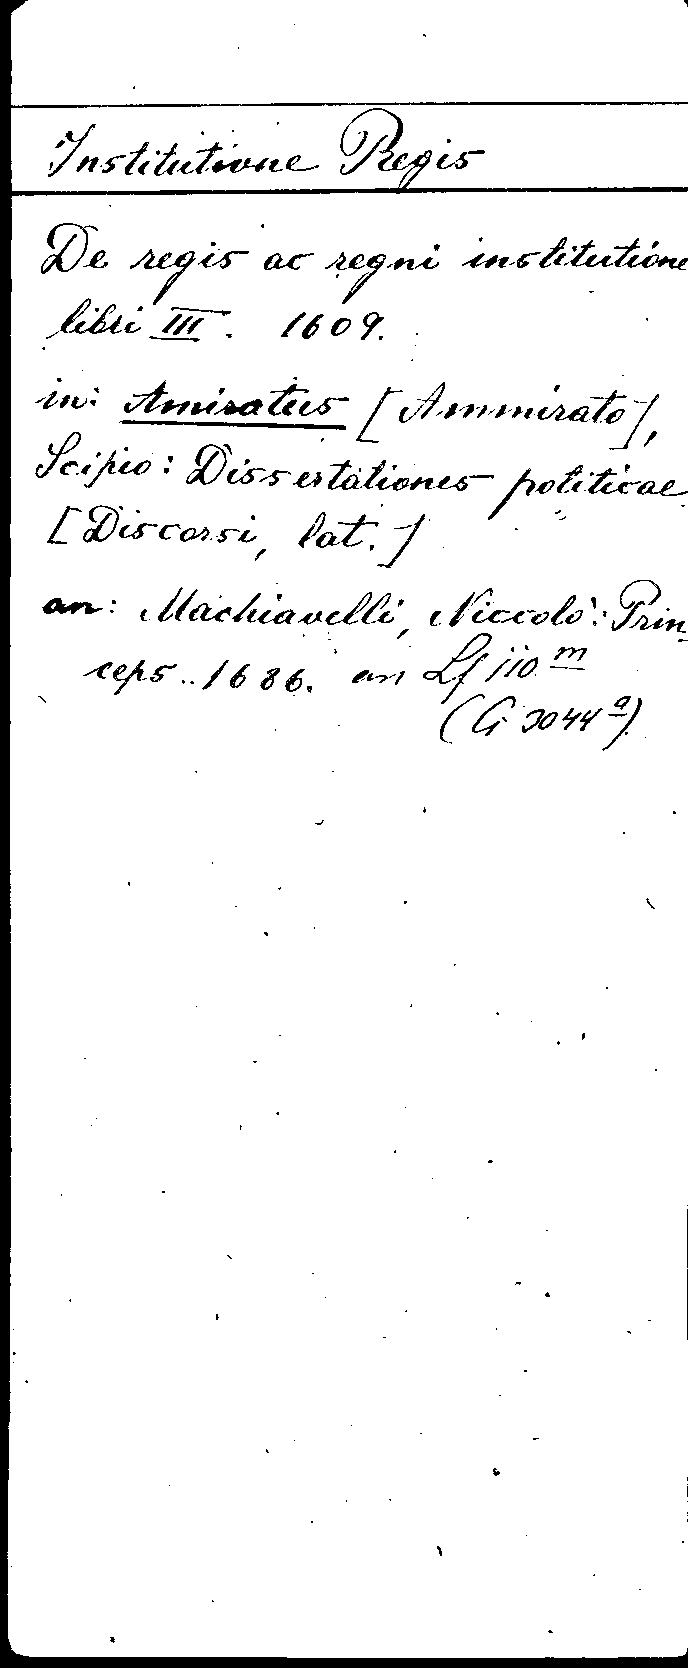 Institutione Regis
De regis ac regni institutione
libri III. 1609.
in: Amiratus [Ammirato],
Scipio: Dissertationes politicae
[Discorsi, lat.]
an: Machiavelli, Niccolò: Prin-
ceps.. 1686. an Lf 110 m
(G 3044 a)